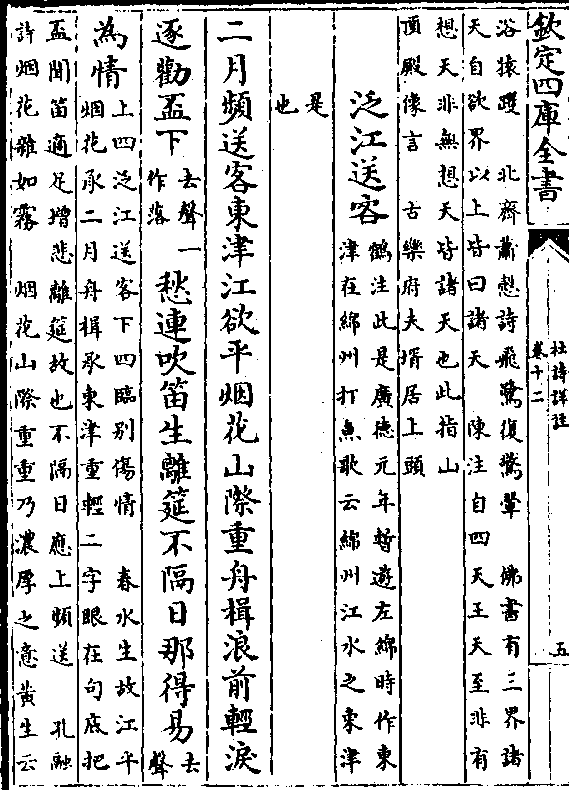 欽定四庫全書
杜詩詳註
卷十二
五
浴猿蹬 北齊蕭慤詩飛驚復驚翬 佛書有三界諸
天自欲界以上皆曰諸天 陳注自四天王天至非有
想天非無想天皆諸天也此指山
頂殿像言 古樂府夫壻居上頭
泛江送客
鶴注此是廣德元年暫遊左綿時作東
津在綿州打魚歌云綿州江水之東津
是
也
二月頻送客東津江欲平烟花山際重舟楫浪前輕淚
逐勸盃下
去聲一
作落
愁連吹笛生離筵不隔日那得易
去
聲
為情
上四泛江送客下四臨別傷情 春水生故江平
烟花承二月舟楫承東津重輕二字眼在句底把
盃聞笛適足增悲離筵故也不隔日應上頻送 孔融
詩烟花雜如霧 烟花山際重重乃濃厚之意黃生云